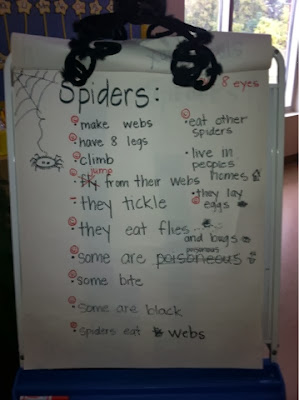 8 eyes
Spiders:
make webs
have 8 legs
climb
jump
fly from their webs
they tickle
they eat flies
and bugs
poisonous
some are poisoneous
some bite
some are black
spiders eat webs
eat other
spiders
live in
peoples
homes
they lay
eggs